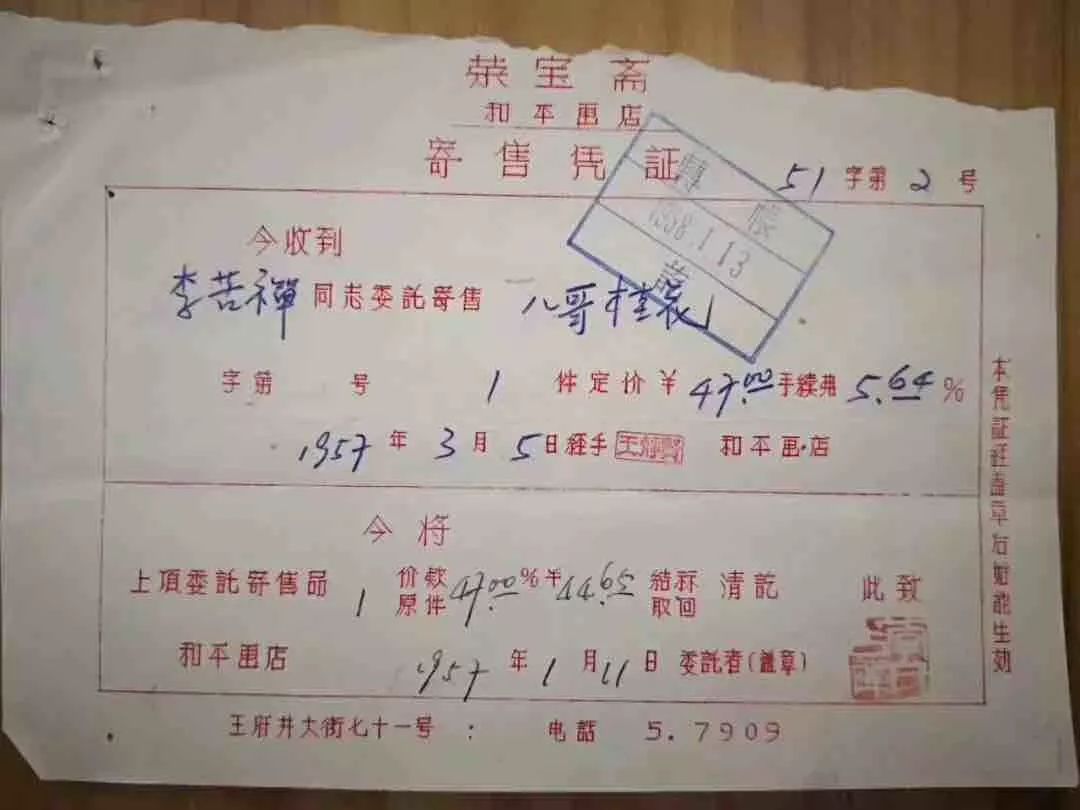 荣宝斋
和平画店
寄售凭証
51字第2号
轉帳
1958.1.13
訖
今收到
李苦禪同志委託寄售 八哥
字第 号 1 件定价¥47.00手續费5.64%
1957年3月5日經手 和平画店
今将
上項委託寄售品 1 价款 原件 47.00 %¥ 44.65 結 取回 清訖 此致
和平画店 1957年1月11日 委託者(蓋章)
王府井大街七十一号 : 电話 5.7909
本凭証
生効